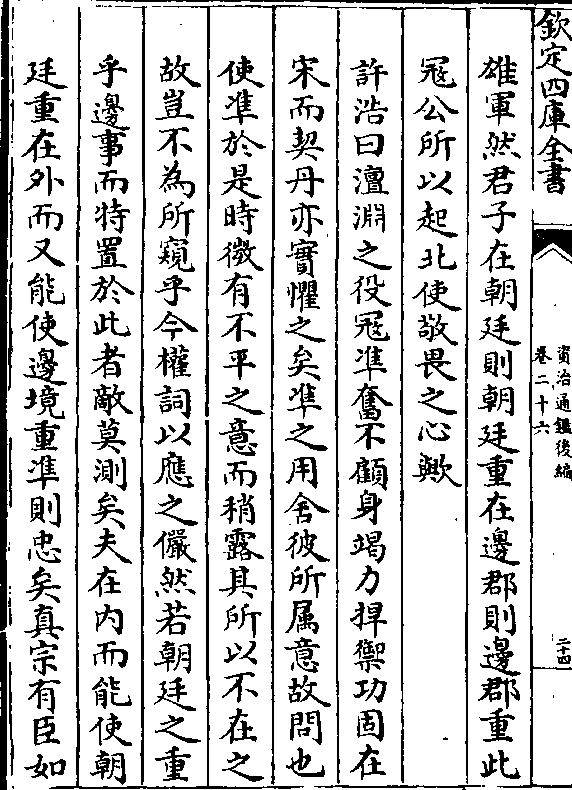 欽定四庫全書
資治通鑑後編
卷二十六
二十四
雄軍然君子在朝廷則朝廷重在邊郡則邊郡重此
冦公所以起北使敬畏之心歟
許浩曰澶淵之役冦準奮不顧身竭力捍禦功固在
宋而契丹亦實懼之矣準之用舍彼所属意故問也
使準於是時微有不平之意而稍露其所以不在之
故豈不為所窺乎今權詞以應之儼然若朝廷之重
乎邊事而特置於此者敵莫測矣夫在内而能使朝
廷重在外而又能使邊境重準則忠矣真宗有臣如